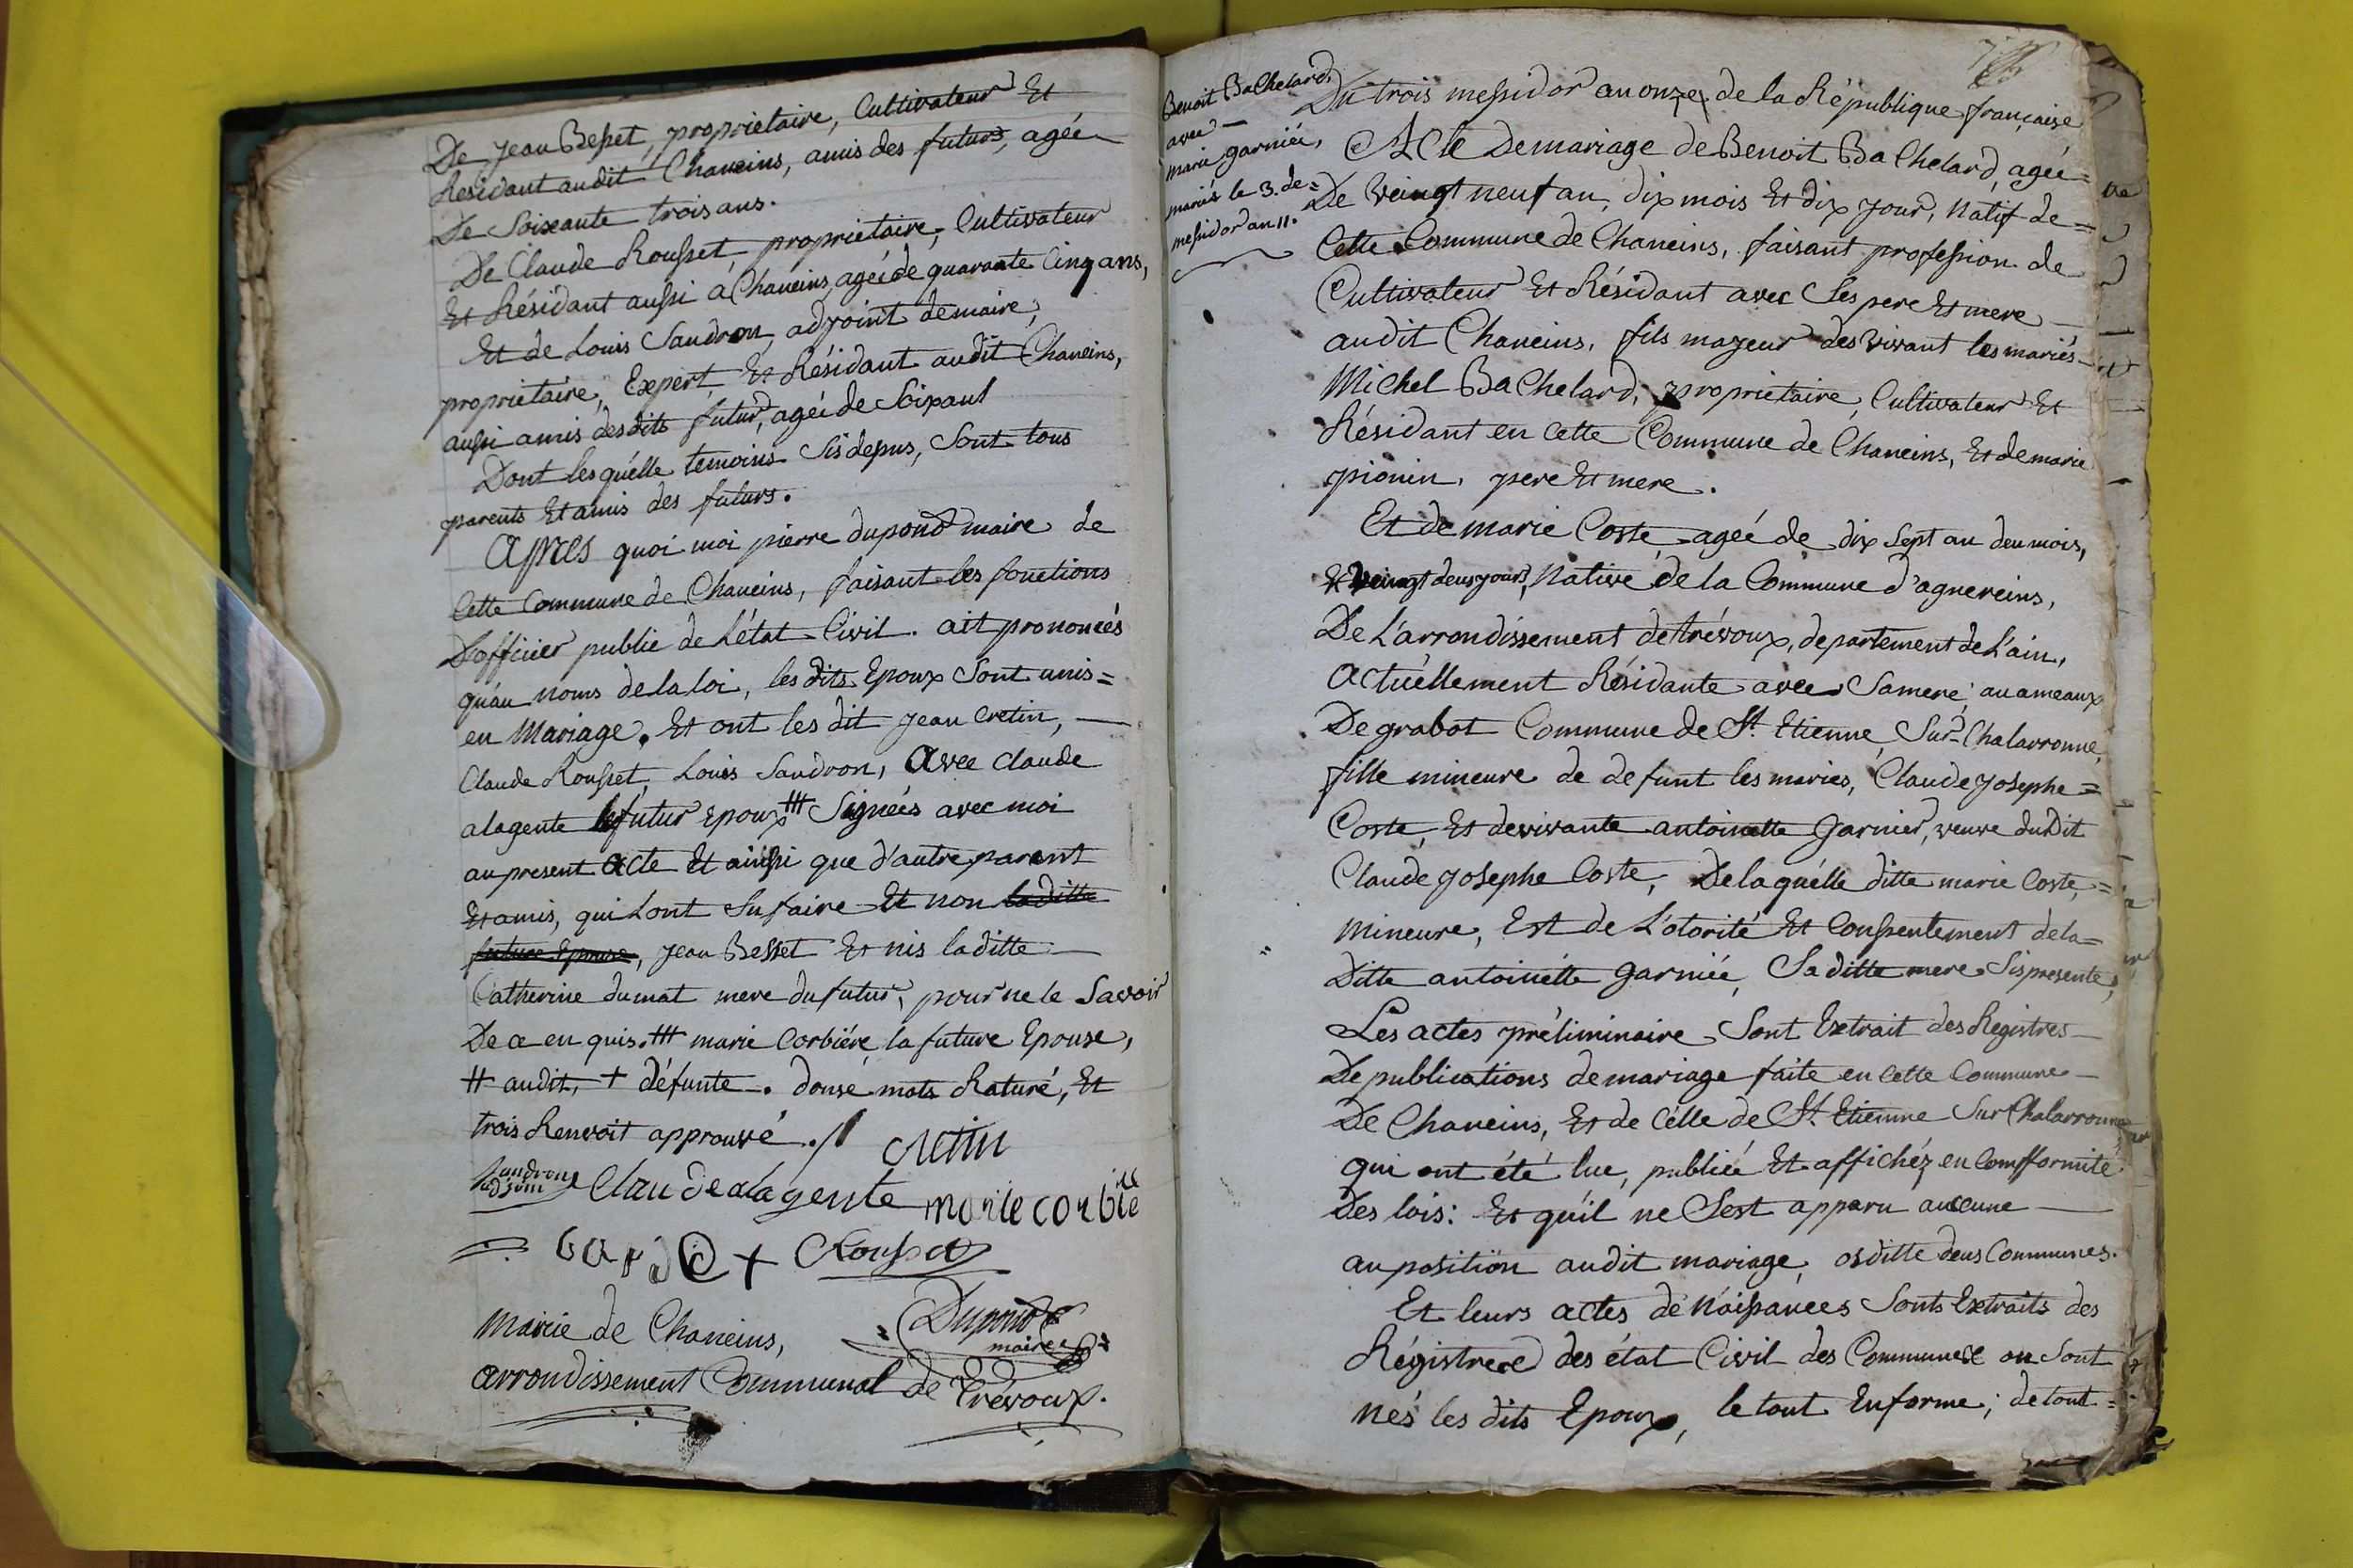 De Jean Besset, proprietaire, Cultivateur Et
Residant audit Chaneins, amis des futurs, agée
De Soixante trois ans.
De Claude Rousset, proprietaire, Cultivateur
Et Résidant aussi a Chaneins, ageé de quarante Cinq ans,
Et de Louis Sandron, adjoint demaire,
proprietaire, Expert, Et Résidant audit Chaneins,
aussi amis desdits futur, ageé de Soixant
Dont lesquélle temoins Sis depus, Sont tous
parents Et amis des futurs.
Apres quoi moi pierre dupond maire de
Cette Commune de Chaneins, faisant les fonctions
D'officier public de L'état Civil. ait prononcés
qu'au noms de la loi, les dits Epoux Sont unis=
en Mariage. Et ont les dit Jean Cretin, —
Claude Rousset, Louis Sandron, Avec claude
alagente le futur Epoux ttt Signeés avec moi
au present acte Et ainssi que d'autre parent
Et amis, qui Lont Su faire Et non la ditte
future Epouse, Jean Besset Et nis la ditte —
Catherine dumat mere du futur, pour ne le Savoir
De ce en quis. ttt marie Corbiére la future Epouse,
tt audit, + défunte. douse mots Raturé, Et
trois Renvoit approuvé ./.
cretin
Sandron
adjoint
Claudealagente
marie corbie
Rousset
Dupond
maire
Mairie de Chaneins,
arrondissement Communal de Trévoux.
Benoit BaChelard,
avec —
marie garniée,
mariés le 3. de=
messidor an 11.
Du trois messidor an onze, de la République française
Acte Demariage de Benoit BaChelard, ageé=
De Veingt neuf an, dix mois Et dix jour, Natif de=
Cette Commune de Chaneins, faisant profession de
Cultivateur Et Résidant avec Ses pere Et mere —
audit Chaneins, fils mayeur des vivant les mariés—
Michel BaChelard, proprietaire, Cultivateur Et
Résidant en Cette Commune de Chaneins, Et de marie
pionin, pere Et mere.
Et de marie Coste, ageé de dix Sept an deu mois,
Et Veingt deus jours, Native de la Commune d'agnereins,
De L'arrondissement de trévoux, departement de L'ain,
Actuéllement Résidante avec Samere, au ameaux
De grabot Commune de St. Etienne Sur-Chalaronne,
fille mineure de defunt les maries, Claude Josephe=
Coste, Et devivante antoinette Garnier, veuve du Dit
Claude Josephe Coste, De laquélle ditte marie Coste,=
Mineure, Est de L'otorité Et Conssentement de la=
Ditte antoinétte Garniée, Sa ditte mere Sis presente,
Les actes préliminaire Sont Extrait des Registres—
De publications de mariage faite en Cette Commune—
De Chaneins, Et de Célle de St. Etienne Sur Chalaronne
qui ont été lue, publiée Et affichéz en Comfformité
Des lois: Et qu'il ne Sest apparu auccune —
auposition audit mariage, osditte deus Communes.
Et leurs actes de Naissances Sonts Extraits des
Régistrere des état Civil des Communes ou Sont
nés les dits Epoux, le tout En forme; de tout=